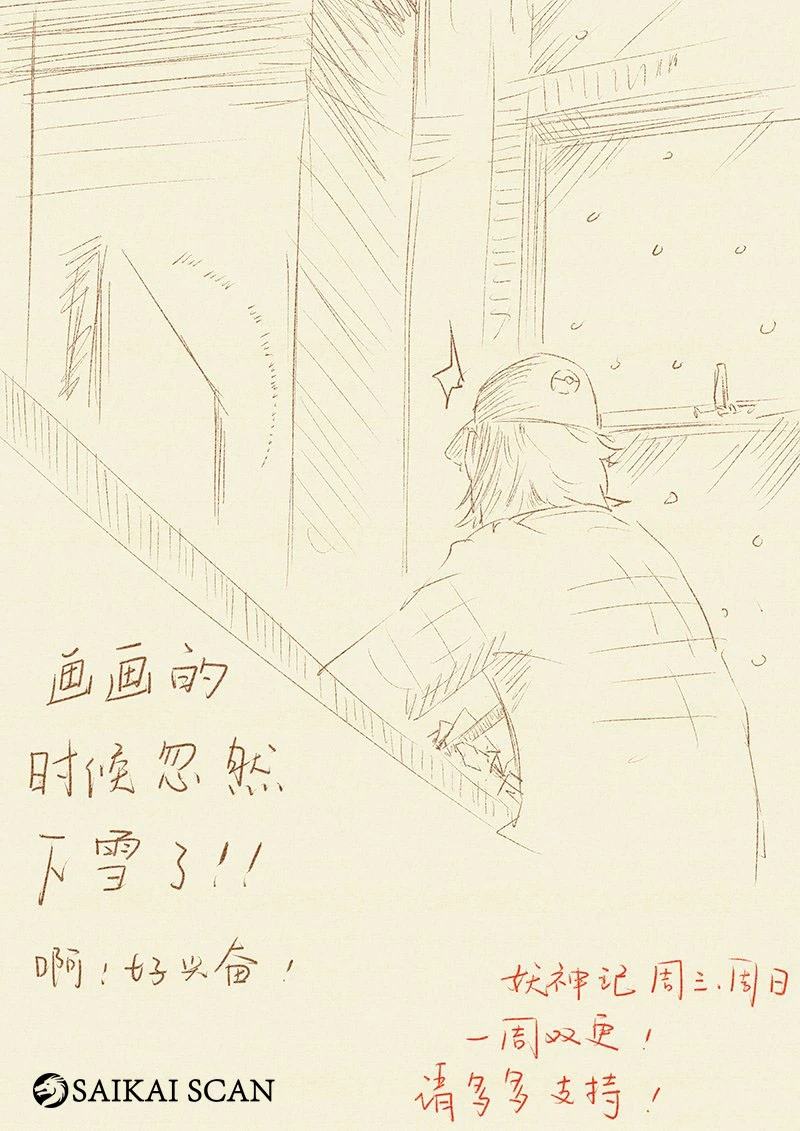 画画的
时候忽然
下雪了!!
啊!好兴奋!
妖神记 周三.周日
一周双更!
请多多支持!
SAIKAI SCAN